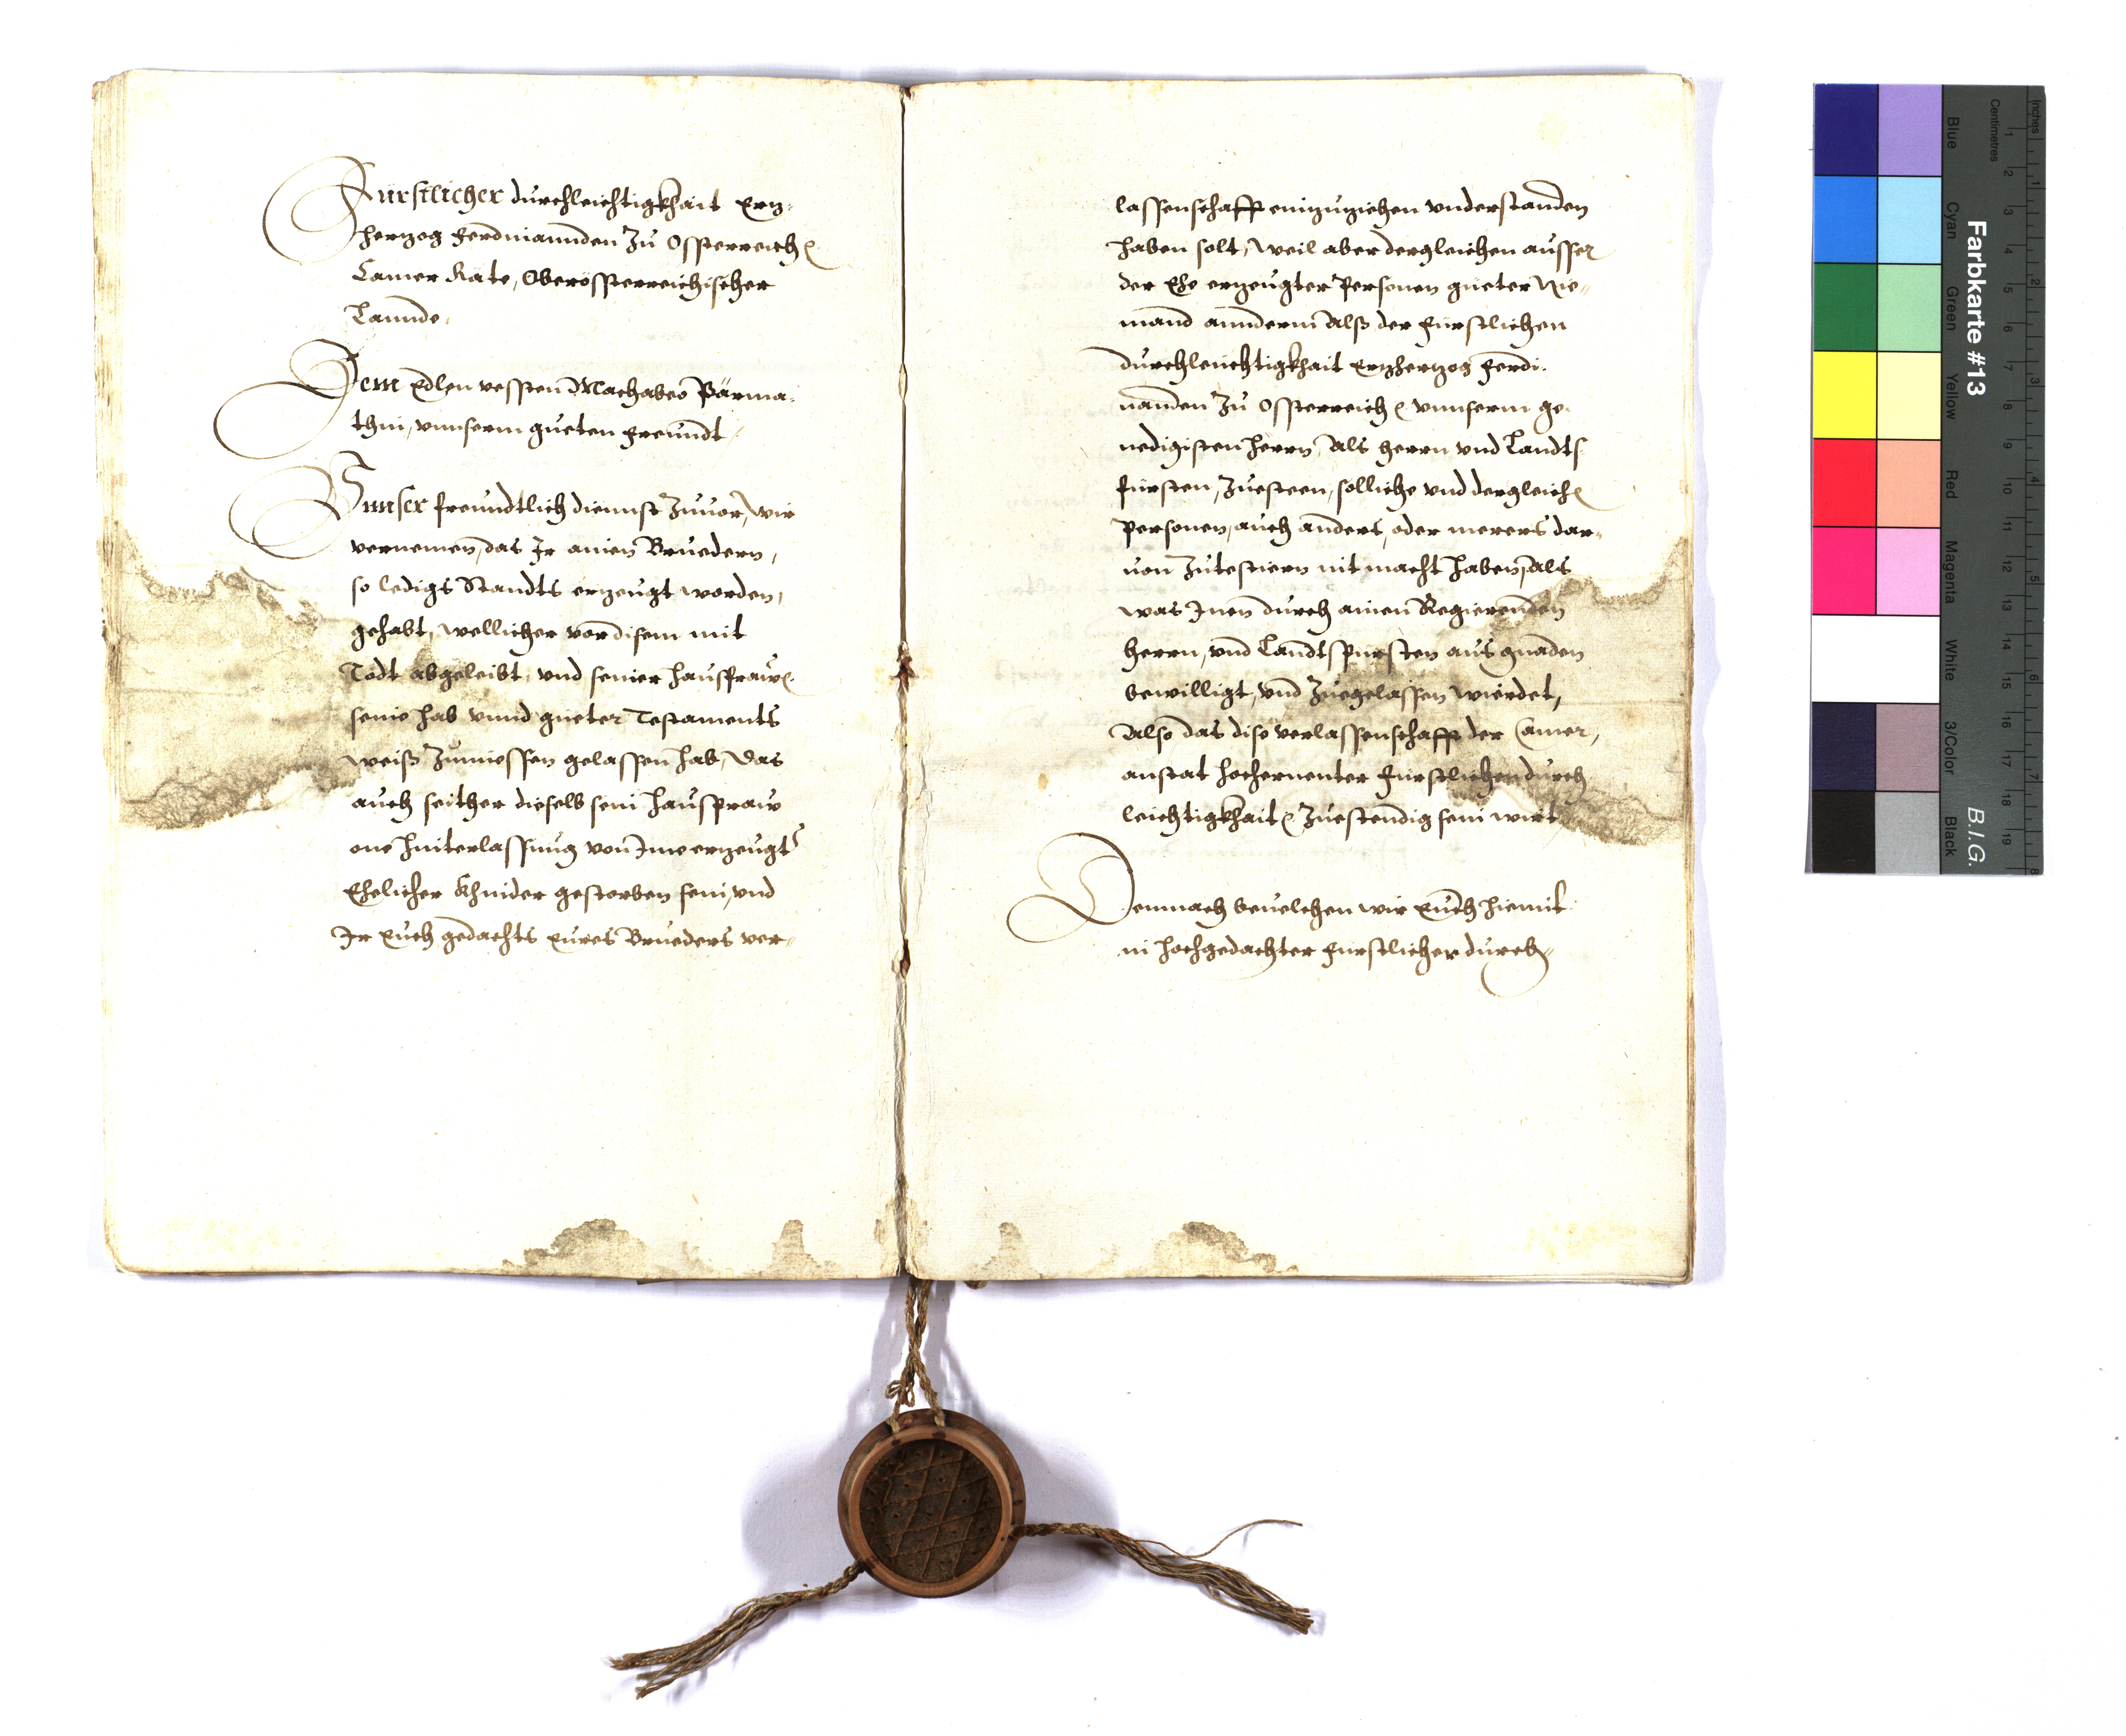 Fürstlicher durchleichtigkhait Ertz-
hertzog Ferdinannden Zu Ossterreich
Camer Räte, Oberössterreichischer
Lannde.
Dem Edlen vessten Machabeo Pärma-
thin, vnnserm gueten freundt.
Vnnser freundtlich diennst Zuuor, wir
vernemen, das Ir ainen Bruedern,
so ledigs Standts erzeugt worden,
gehabt, wellicher vor disem mit
Todt abgeleibt, vnd seiner hausfrawen
seine hab vnnd güeter Testaments
weiß Zuniessen gelassen hab, Das
auch seither dieselb sein hausfraw
one hinterlassung von Ime erzeugter
Ehelicher Khinder gestorben sein, vnd
Ir Euch gedachts eures Brueders ver-
lassenschafft einzuziehen vnderstanden
haben solt, Weil aber dergleichen ausser
der Ehe erzeugter Personen güeter Nie-
mand annderm Alß der Fürstlichen
durchleuchtigkhait Ertzhertzog Ferdi-
nanden Zu Ossterreich vnnserm ge-
nedigisten herrn, Als herrn vnd Landts
fürsten, Zuesteen, solliche vnd dergleichen
Personen, auch anders, oder merers dar-
uon Zutestiern nit macht haben, Als
was Inen durch ainen Regierenden
herrn, vnd Landtsfürsten aus gnaden
bewilligt, vnd Zuegelassen wierdet,
Also das dise verlassenschafft der Camer,
anstat hochernenter Fürstlichen durch
leichtigkhait Zuestendig sein wirt
Demnach beuelchen wir Euch hiemit
in hochgedachter Fürstlicher durch-
Farbkarte #13
B.I.G.
Inches
Centimetres
1 2 3 4 5 6 7 8 9 10 11 12 13 14 15 16 17 18 19
1 2 3 4 5 6 7 8
Blue
Cyan
Green
Yellow
Red
Magenta
White
3/Color
Black